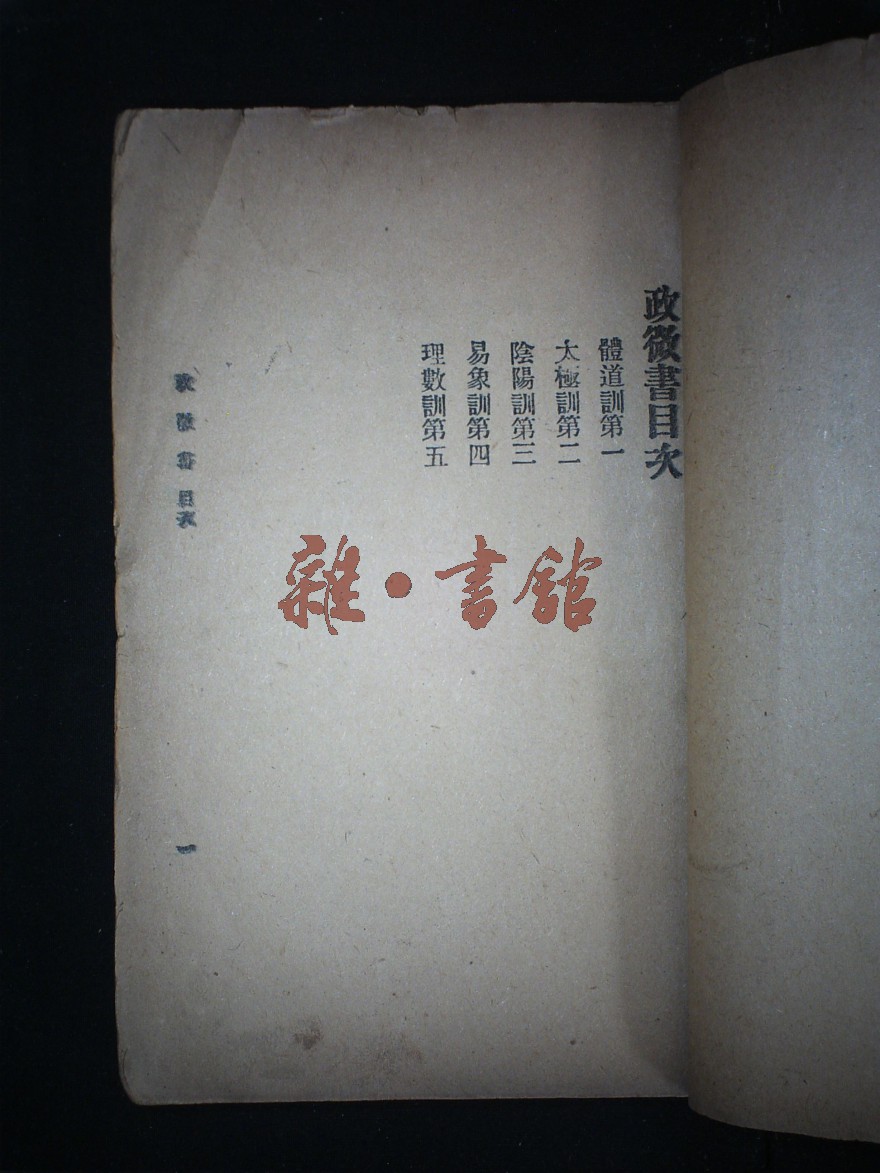 政徵書目次
體道訓第一
太極訓第二
陰陽訓第三
易象訓第四
理數訓第五
政徵書 目次
一
雜·書館